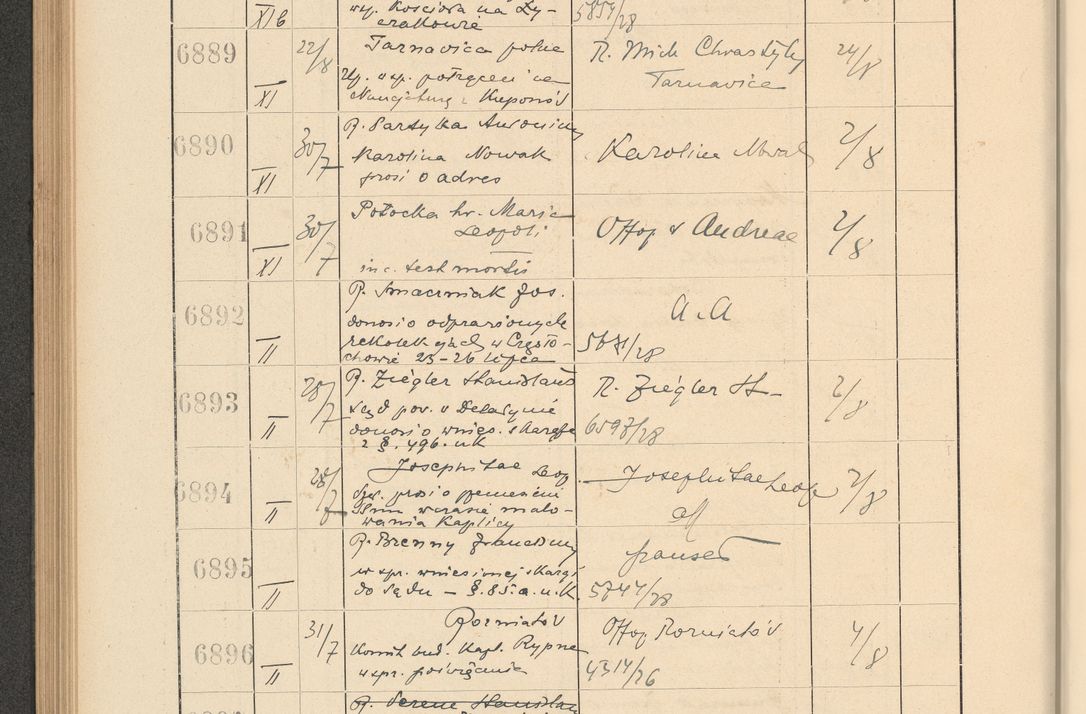 XI b
wy. Kościoła na Ży-
rakowie
5857/28
6889
XI
22/8
Tarnawica polne
w sp. potrąceń
Kuponów
R. Mich Chrastyly
Tarnavice
24/8
6890
XI
30/7
R. Partyka
Karolina Nowak
prosi o adres
Karolina Nowak
2/8
6891
XI
30/7
Potocka hr. Maria
Leopoli
inc. test mortis
Offop v Andreae
2/8
6892
II
R. Smaczniak Jos.
donosi o odprawionych
rekolekcjach w Często-
chowie 23-26 lipca
a. a
5671/28
6893
II
28/7
R. Ziegler Stanisław
Sąd pow. w Delatynie
donosi o wnies. skardze
z §. 496. uk
R. Ziegler St-
6597/28
2/8
6894
II
28/7
Josephitae Leop
prosi o
wania Kaplicy
Josephitae Leop
2/8
6895
II
R. Brenny Franciszny
w spr. wniesionej skargi
do Sądu - §. 85. a. u. K.
transeat
5747/28
6896
II
31/7
Rozniatów
Komit bud. Kapl. Rypne
w spr. poświęcenia
Offop Rozniatów
4314/26
4/8
R. Serene Stanisław